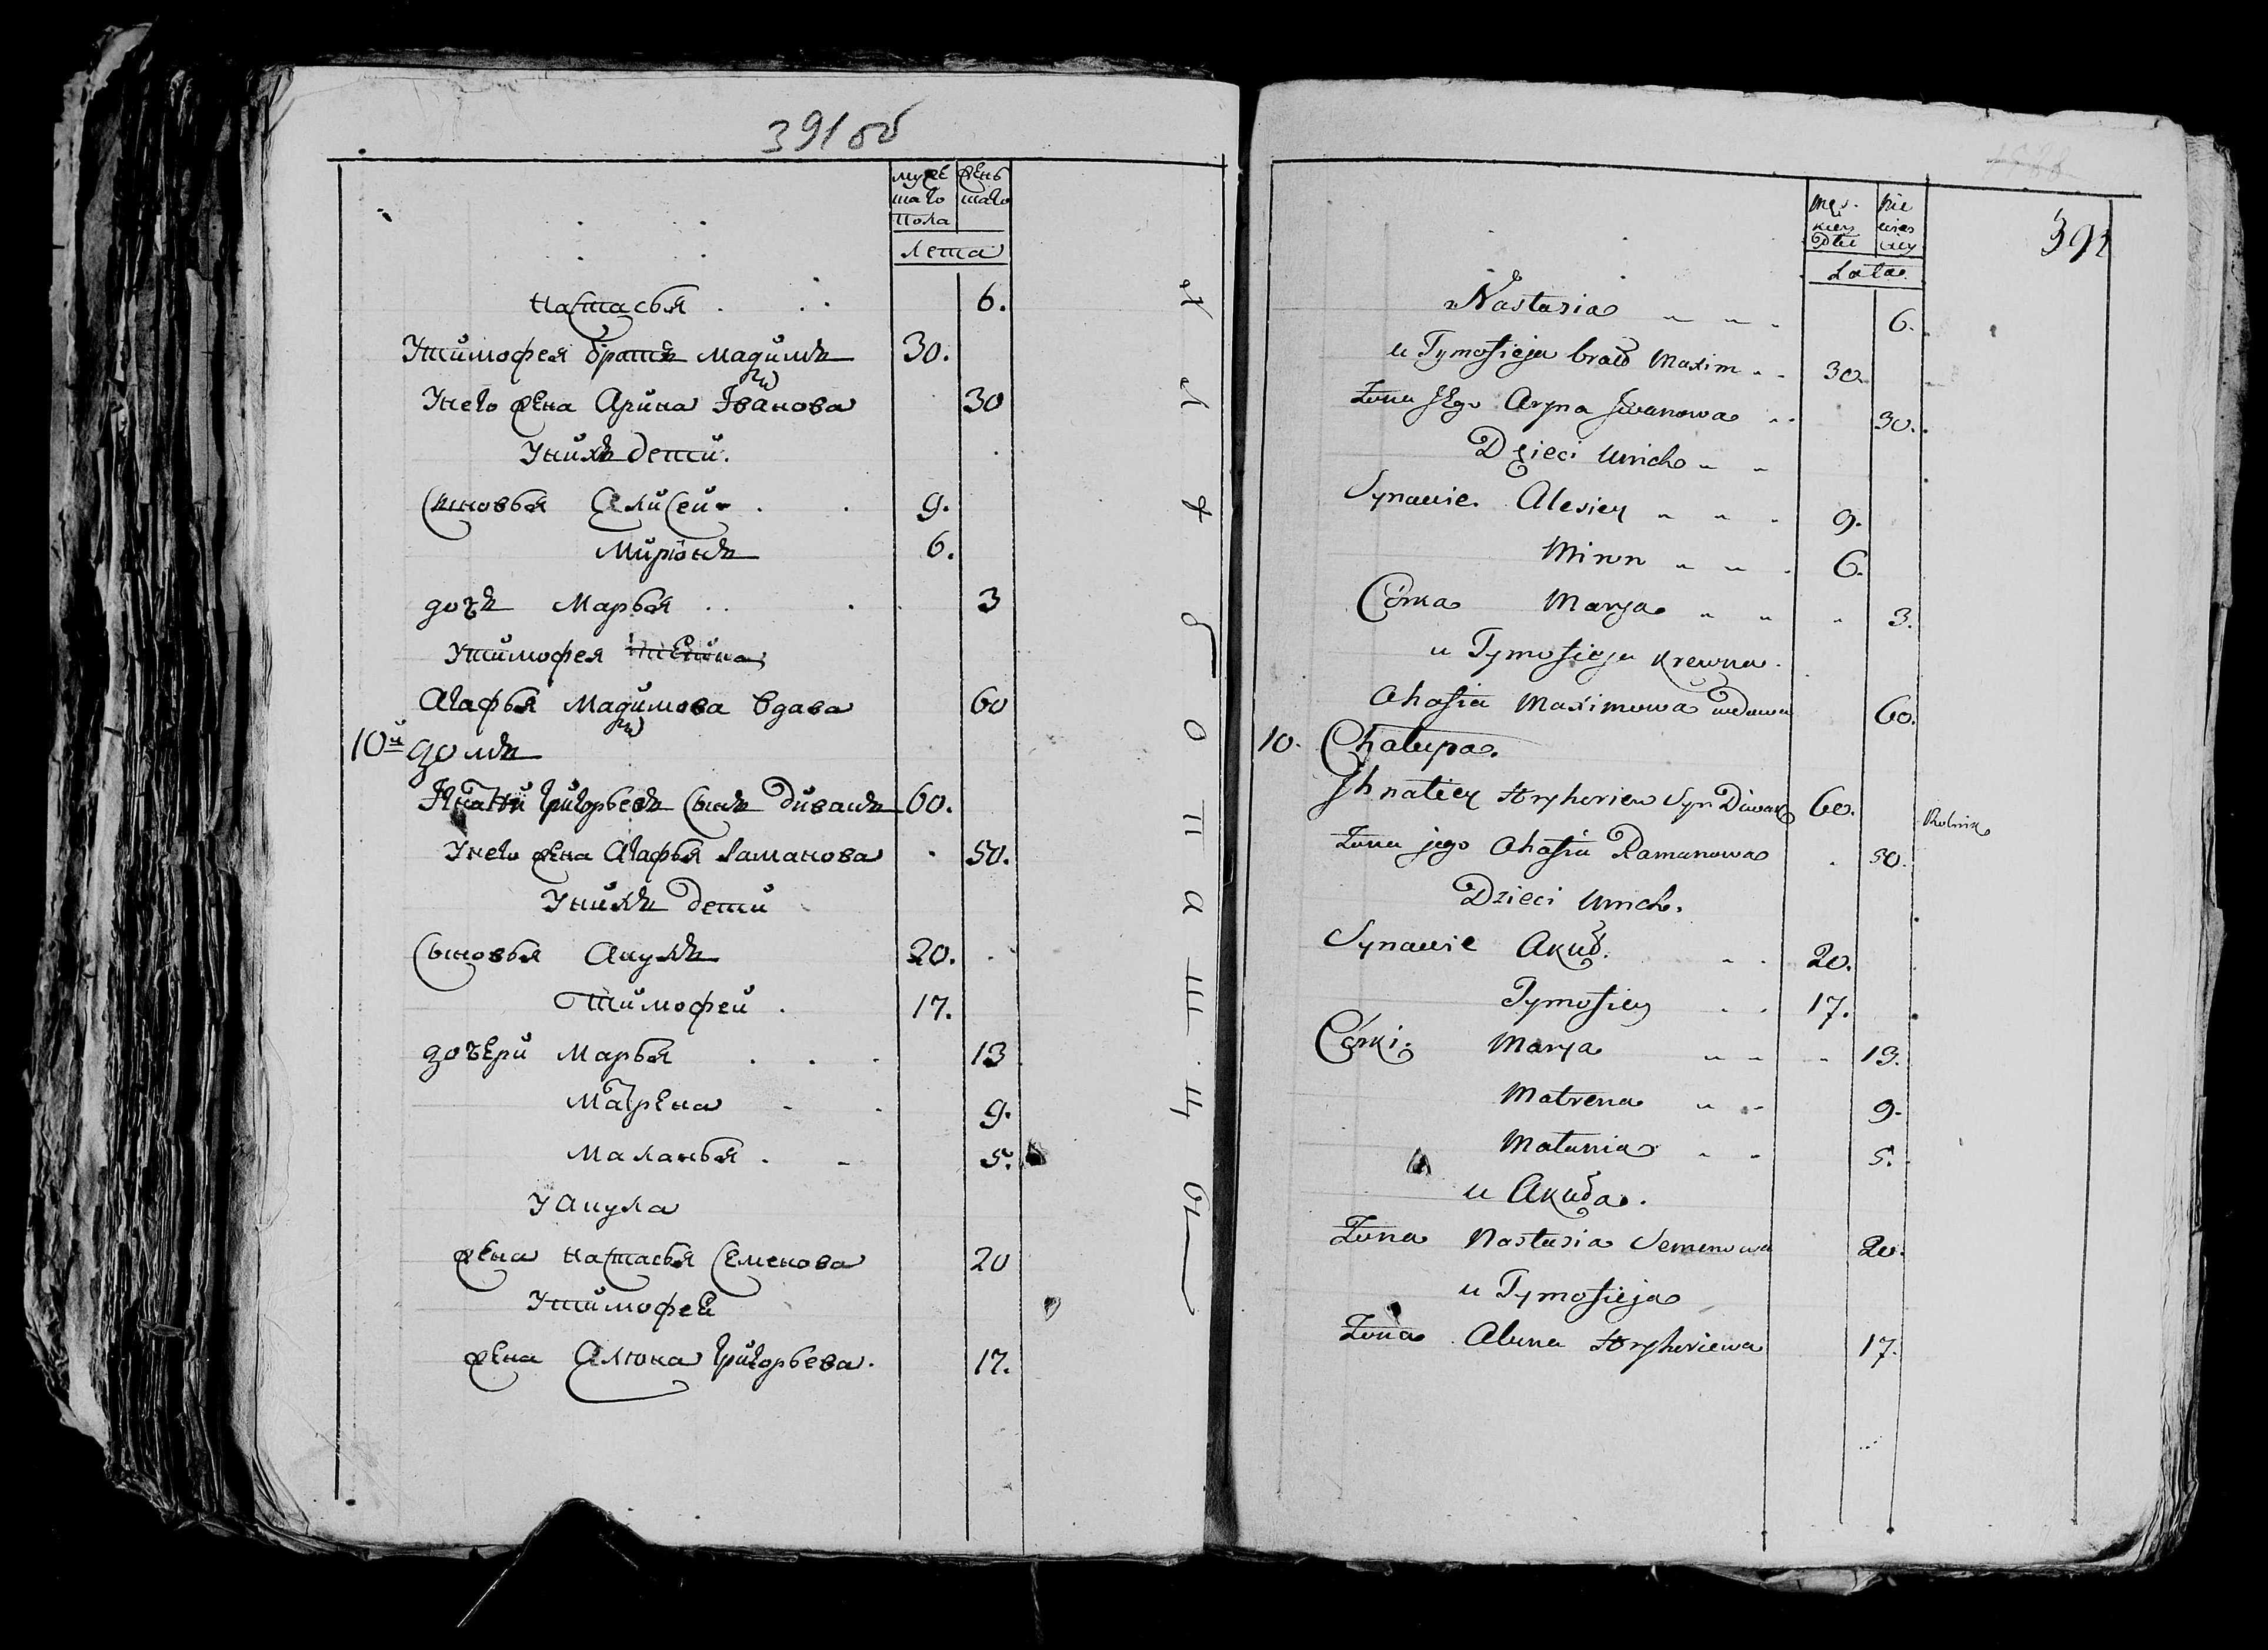 391 об
муже женъ
шаго шаго
пола
лета
Настасья 6.
У Тимофея братъ Мадимъ 30.
У него жена Арина Іванова 30
У нихъ дети.
Сыновья Алисей 9.
Миронъ 6.
дочъ Марья 3
У Тимофея
Агафья Мадимова вдава 60
10й домъ
Игнатй Григорьевъ сынъ Дивакъ 60.
У него жена Агафья Раманова 50.
У нихъ дети
Сыновья Акулъ 20.
Тимофей 17.
дочери Марья 13
Матрена 9.
Маланья 5.
У Акула
жена Настасья Семенова 20
У Тимофей
жена Алюна Григорьева. 17.
392
Męs- Nie
kiey wies
Płci ciey
Lata
Nastasia 6.
u Tymofieja brat Maxim 30.
Zona Jego Aryna Jwanowa 30.
Dzieci unich
Synawie Alesiey 9.
Miron 6.
Córka Marya 3.
u Tymofieja krewna.
Ahafia Maximowa wdowa 60.
10. Chalupa.
Jhnatiey Hryhoriew Syn Diwak 60. Rolnik
Zona jego Ahafia Ramanowa 50.
Dzieci unich.
Synawie Akuł. 20.
Tymofiey 17.
Córki. Marya 13.
Matrena 9.
Matania 5.
u Akuła.
Zona Nastasia Semenowa 20.
u Tymofieja
Zona Aluna Hryhoriewa 17.